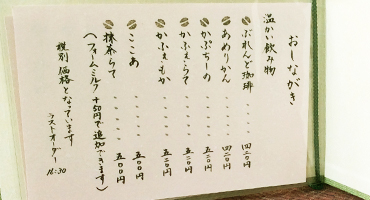 おしながき
温かい飲み物
ぶれんど珈琲 ・・・・ 四二〇円
あめりかん ・・・・ 四二〇円
かぷちーの ・・・・ 五二〇円
かふぇらて ・・・・ 五二〇円
かふぇもか ・・・・ 五二〇円
ここあ ・・・・ 五〇〇円
抹茶らて ・・・・ 五〇〇円
(フォームミルク +50円で追加できます)
税別価格となっています
ラストオーダー 16:30